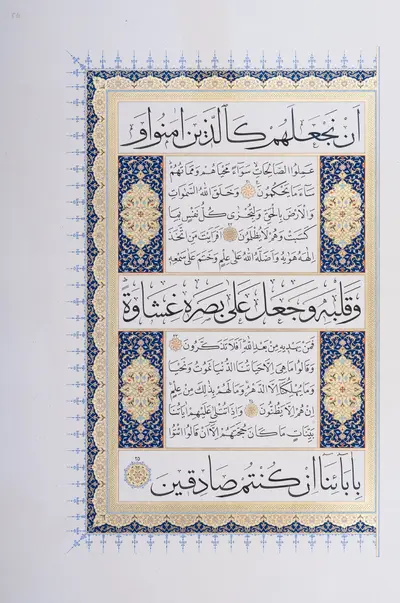 أَنْ نَجْعَلَهُمْ كَالَّذِينَ آمَنُوا وَ
عَمِلُوا الصَّالِحَاتِ سَوَاءً مَحْيَاهُمْ وَمَمَاتُهُمْ
سَاءَ مَا يَحْكُمُونَ وَخَلَقَ اللَّهُ السَّمَوَاتِ
وَالْأَرْضَ بِالْحَقِّ وَلِتُجْزَى كُلُّ نَفْسٍ بِمَا
كَسَبَتْ وَهُمْ لَا يُظْلَمُونَ أَفَرَأَيْتَ مَنِ اتَّخَذَ
إِلَهَهُ هَوَاهُ وَأَضَلَّهُ اللَّهُ عَلَى عِلْمٍ وَخَتَمَ عَلَى سَمْعِهِ
وَقَلْبِهِ وَجَعَلَ عَلَى بَصَرِهِ غِشَاوَةً
فَمَنْ يَهْدِيهِ مِنْ بَعْدِ اللَّهِ أَفَلَا تَذَكَّرُونَ
وَقَالُوا مَا هِيَ إِلَّا حَيَاتُنَا الدُّنْيَا نَمُوتُ وَنَحْيَا
وَمَا يُهْلِكُنَا إِلَّا الدَّهْرُ وَمَا لَهُمْ بِذَلِكَ مِنْ عِلْمٍ
إِنْ هُمْ إِلَّا يَظُنُّونَ وَإِذَا تُتْلَى عَلَيْهِمْ آيَاتُنَا
بَيِّنَاتٍ مَا كَانَ حُجَّتَهُمْ إِلَّا أَنْ قَالُوا ائْتُوا
بِآبَائِنَا إِنْ كُنْتُمْ صَادِقِينَ